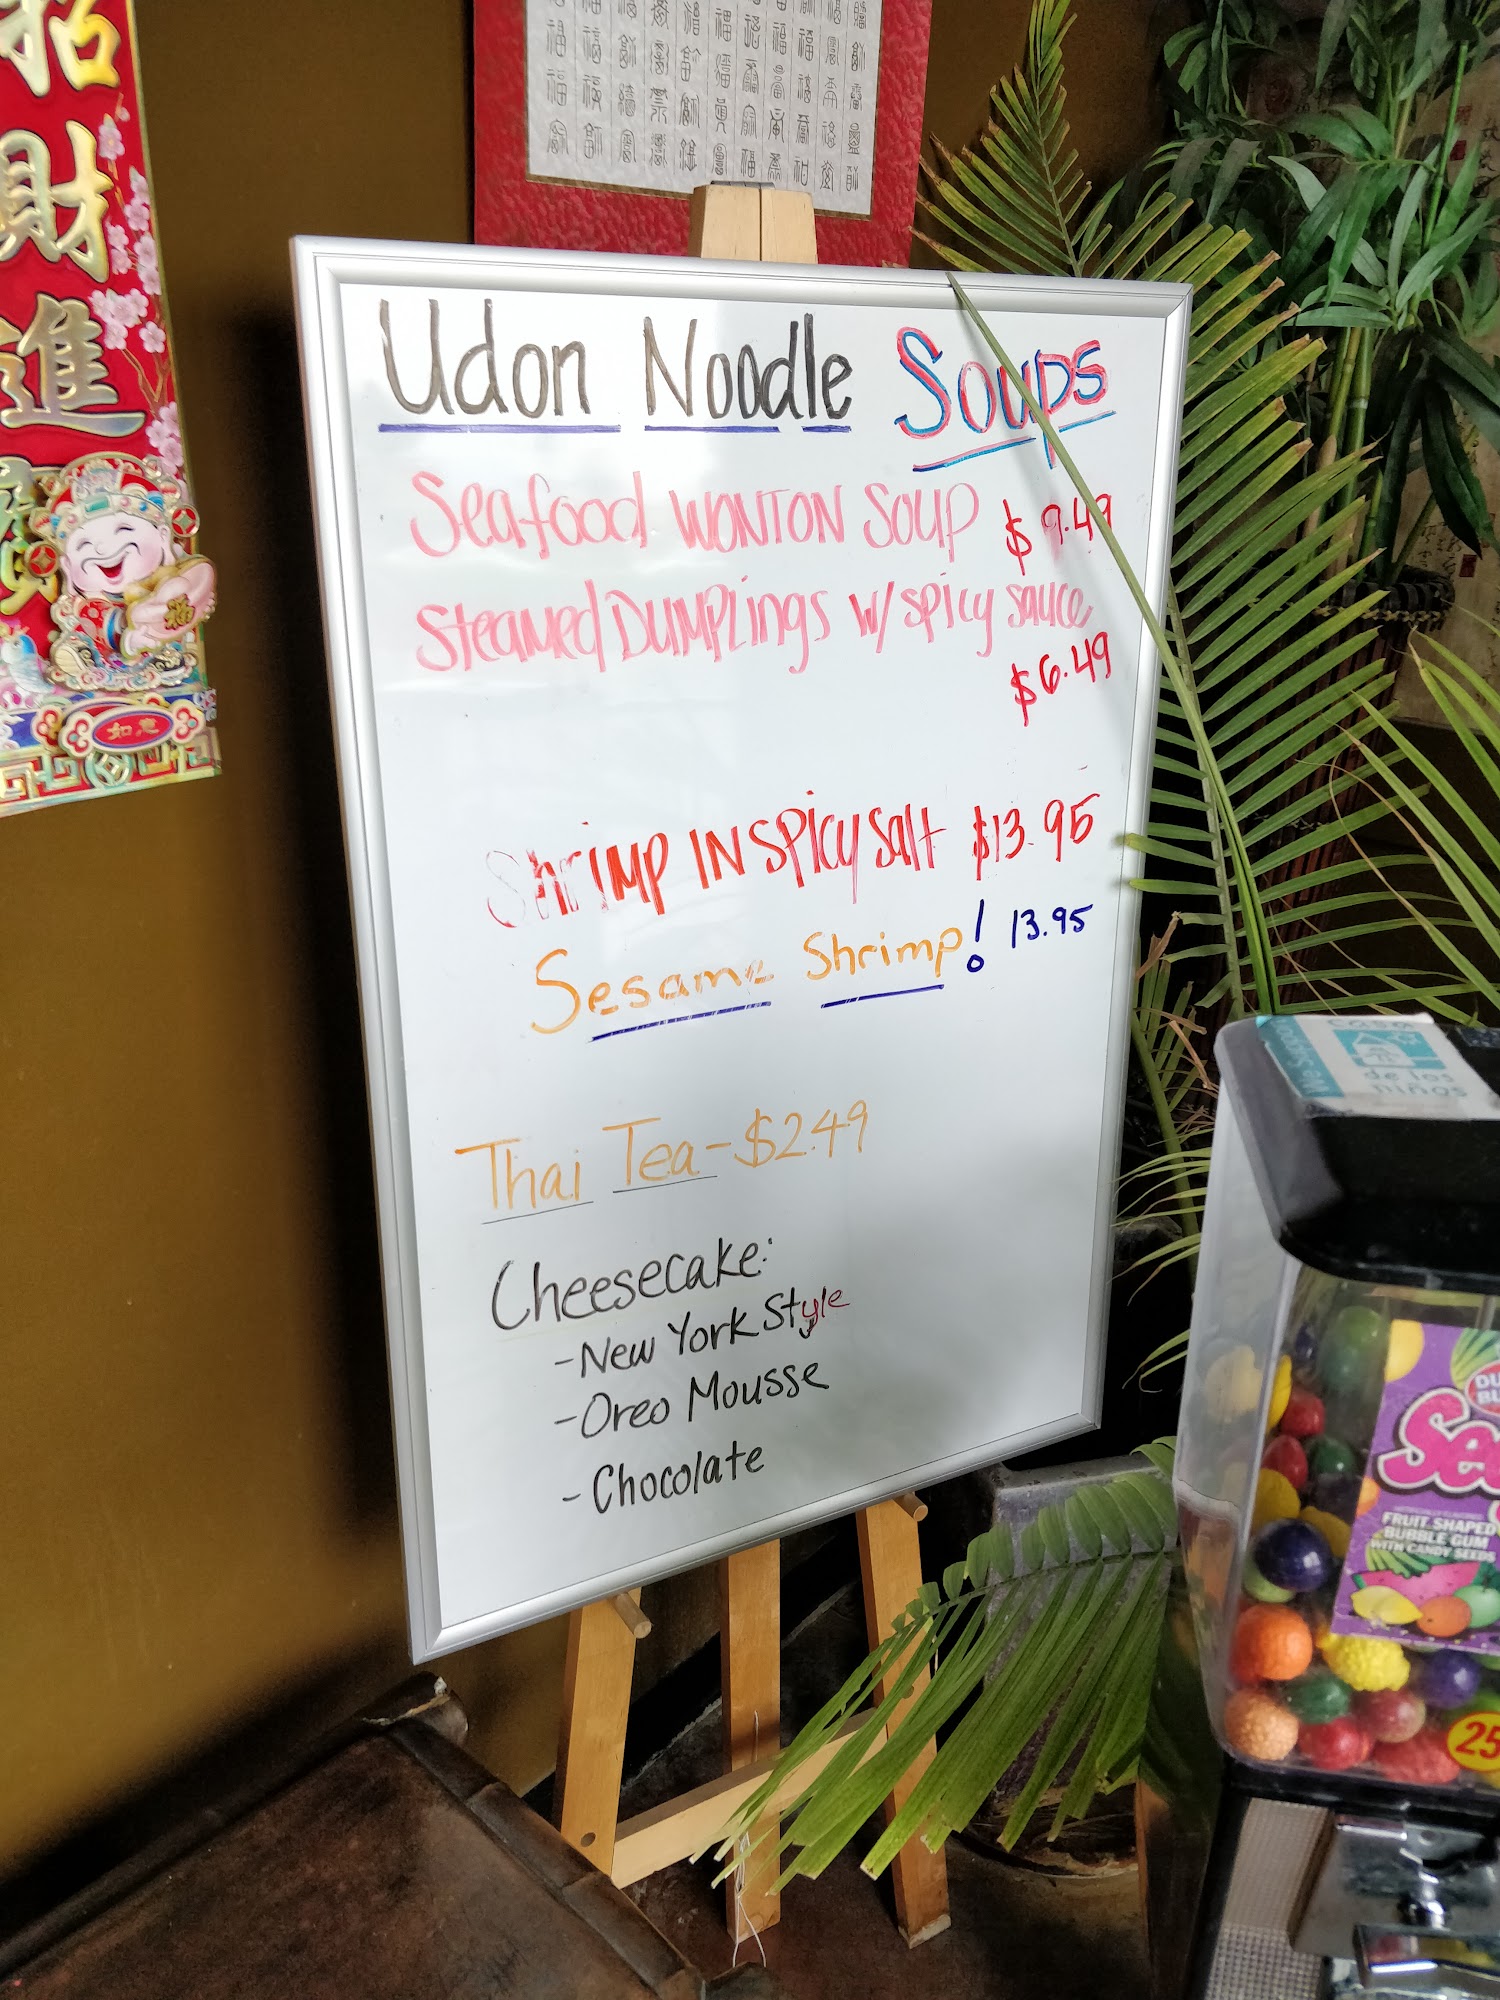 招
財
進
如意
Udon Noodle Soups
Seafood WONTON SOUP $9.49
Steamed DUMPLings w/ spicy sauce
$6.49
ShrIMP IN SPicy Salt $13.95
Sesame Shrimp! 13.95
Thai Tea - $2.49
Cheesecake:
- New York Style
- Oreo Mousse
- Chocolate
casa
de los
niños
FRUIT SHAPED
BUBBLE GUM
WITH CANDY SEEDS
25